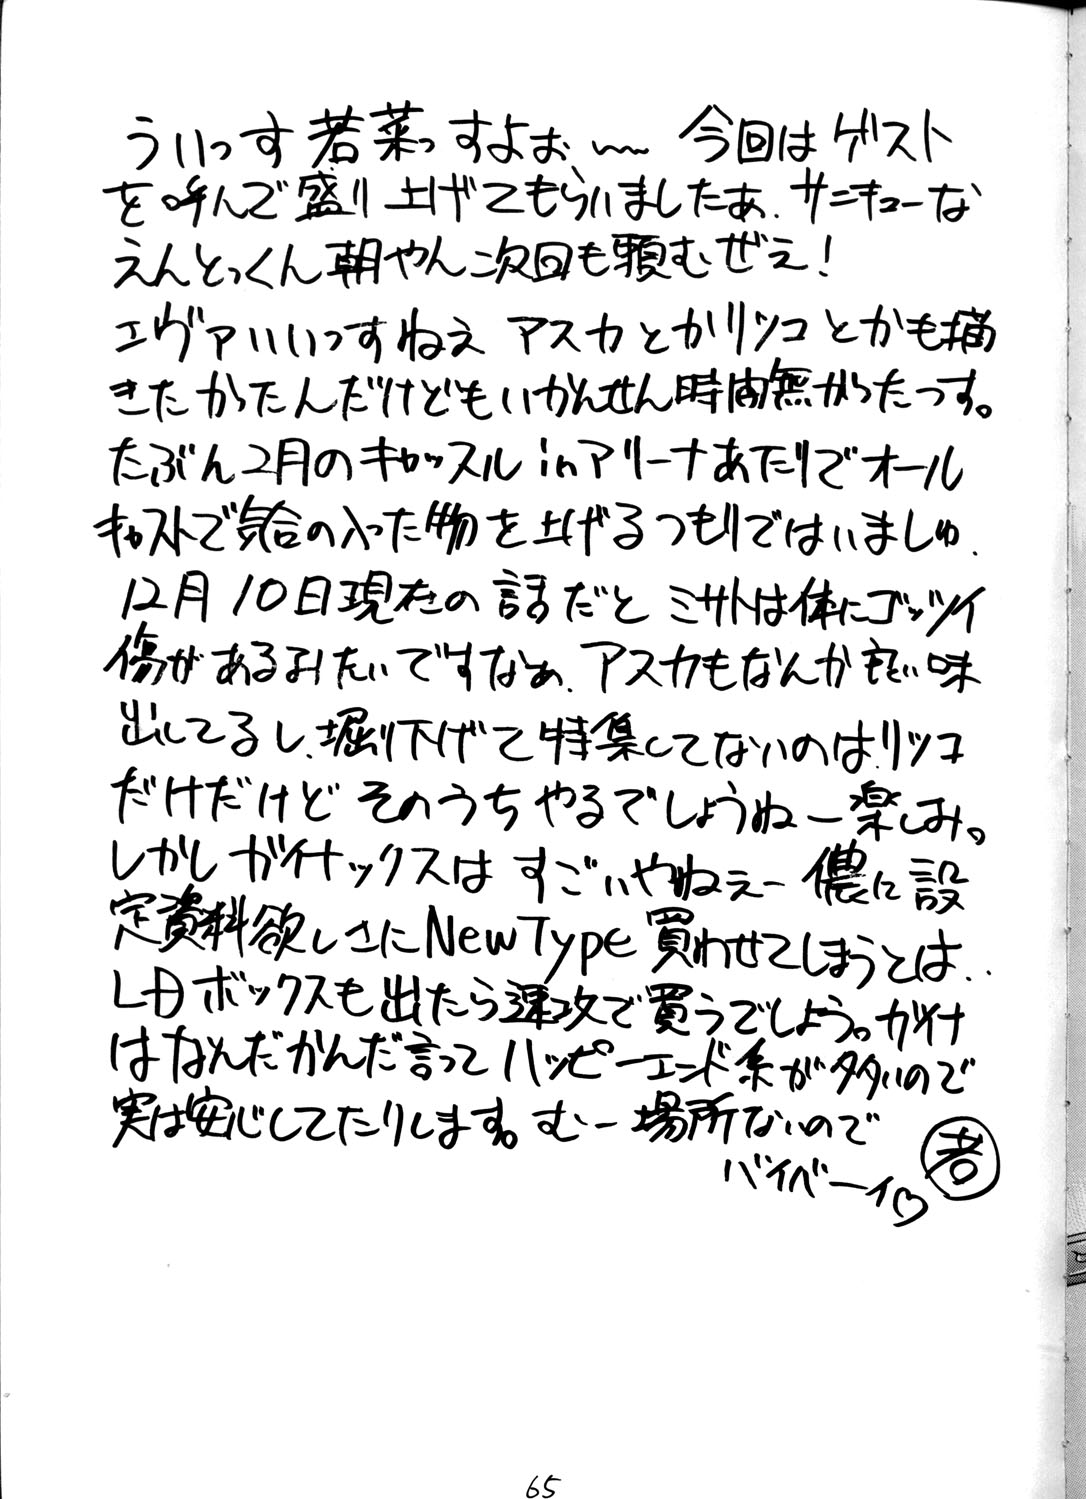 ういっす 若菜っすよぉ、〜 今回は ゲスト
を呼んで盛り上げてもらいましたぁ、サンキューな
えんとっくん 朝やん 次回も頼むぜぇ!
エヴァいいっすねぇ アスカとかリツコとかも描
きたかったんだけどもいかんせん時間無かったっす。
たぶん2月のキャッスル inアリーナあたりでオール
キャストで気合の入った物を上げるつもりではいましゅ.
12月10日現在の話だと ミサトは体にゴッツイ
傷があるみたいですなぁ、アスカもなんか良い味
出してるし、堀り下げて特集してないのは、リツコ
だけだけど そのうちやるでしょうねー楽しみ。
しかし ガイナックスは すごいやねぇー 儂に設
定資料欲しさにNewType買わせてしまうとは..
LDボックスも出たら速攻で買うでしょう。ガイナ
はなんだかんだ言ってハッピーエンド系が多いので
実は安心してたりします。むー場所ないので
バイベーイ♡ 若
65